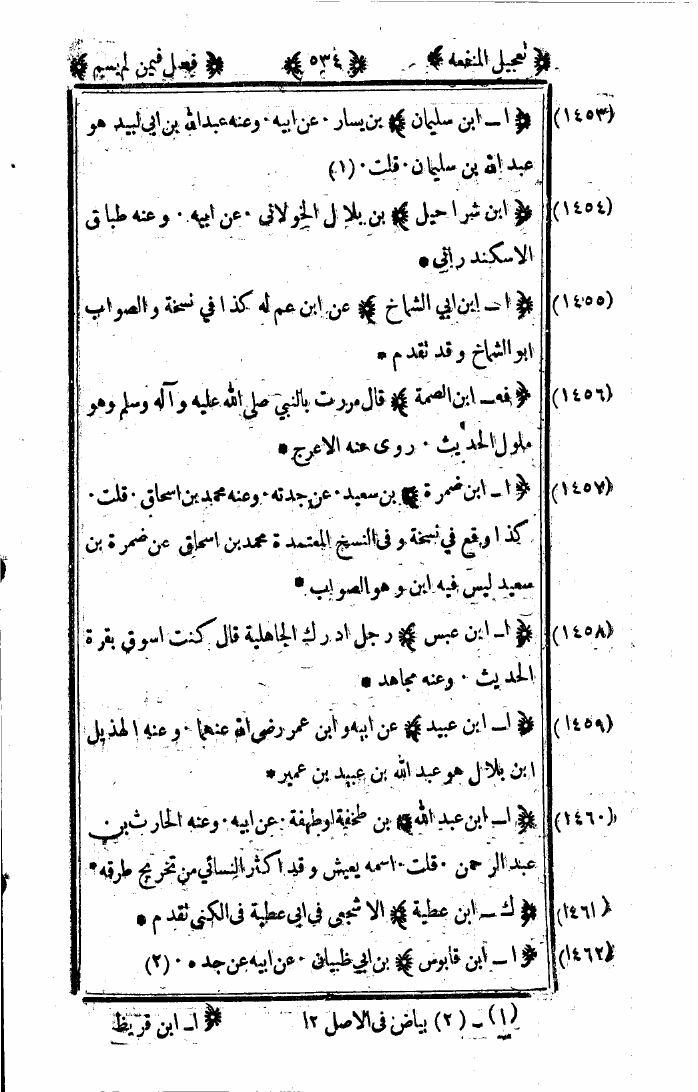 ﴿ تعجيل المنفعه ﴾ ﴿ ٥٣٤ ﴾ ﴿ فصل فيمن لم يسم ﴾
(١٤٥٣) ﴿ ا ــ ابن سليمان ﴾ بن يسار · عن ابيه · وعنه عبدالله بن ابي لبيد هو
عبد الله بن سليمان · قلت · (١)
(١٤٥٤) ﴿ ابن شراحيل ﴾ بن بلال الخولاني · عن ابيه · وعنه طباق
الاسكندراني *
(١٤٥٥) ﴿ ا ــ ابن ابي الشماخ ﴾ عن ابن عم له كذا في نسخة والصواب
ابو الشماخ وقد تقدم *
(١٤٥٦) ﴿ فه ــ ابن الصمة ﴾ قال مررت بالنبي صلى الله عليه وآله وسلم وهو
ملول الحديث · روى عنه الاعرج *
(١٤٥٧) ﴿ ا ــ ابن ضمرة ﴾ بن سعيد · عن جدته · وعنه محمد بن اسحاق · قلت ·
كذا وقع في نسخة وفى النسخ المعتمدة محمد بن اسحاق عن ضمرة بن
سعيد ليس فيه ابن وهو الصواب *
(١٤٥٨) ﴿ ا ــ ابن عبس ﴾ رجل ادرك الجاهلية قال كنت اسوق بقرة
الحديث · وعنه مجاهد *
(١٤٥٩) ﴿ ا ــ ابن عبيد ﴾ عن ابيه وابن عمر رضى الله عنهما · وعنه الهذيل
ابن بلال هو عبد الله بن عبيد بن عمير *
(١٤٦٠) ﴿ ا ــ ابن عبد الله ﴾ بن طخفة او طهفة · عن ابيه · وعنه الحارث بن
عبد الرحمن · قلت · اسمه يعيش وقد اكثر النسائي من تخريج طرقه *
(١٤٦١) ﴿ ك ــ ابن عطية ﴾ الاشجعى في ابي عطية فى الكنى تقدم *
(١٤٦٢) ﴿ ا ــ ابن قابوس ﴾ بن ابي ظبيان · عن ابيه عن جده · (٢)
(١) ــ (٢) بياض فى الاصل ١٢ ﴿ ا ــ ابن قريظ